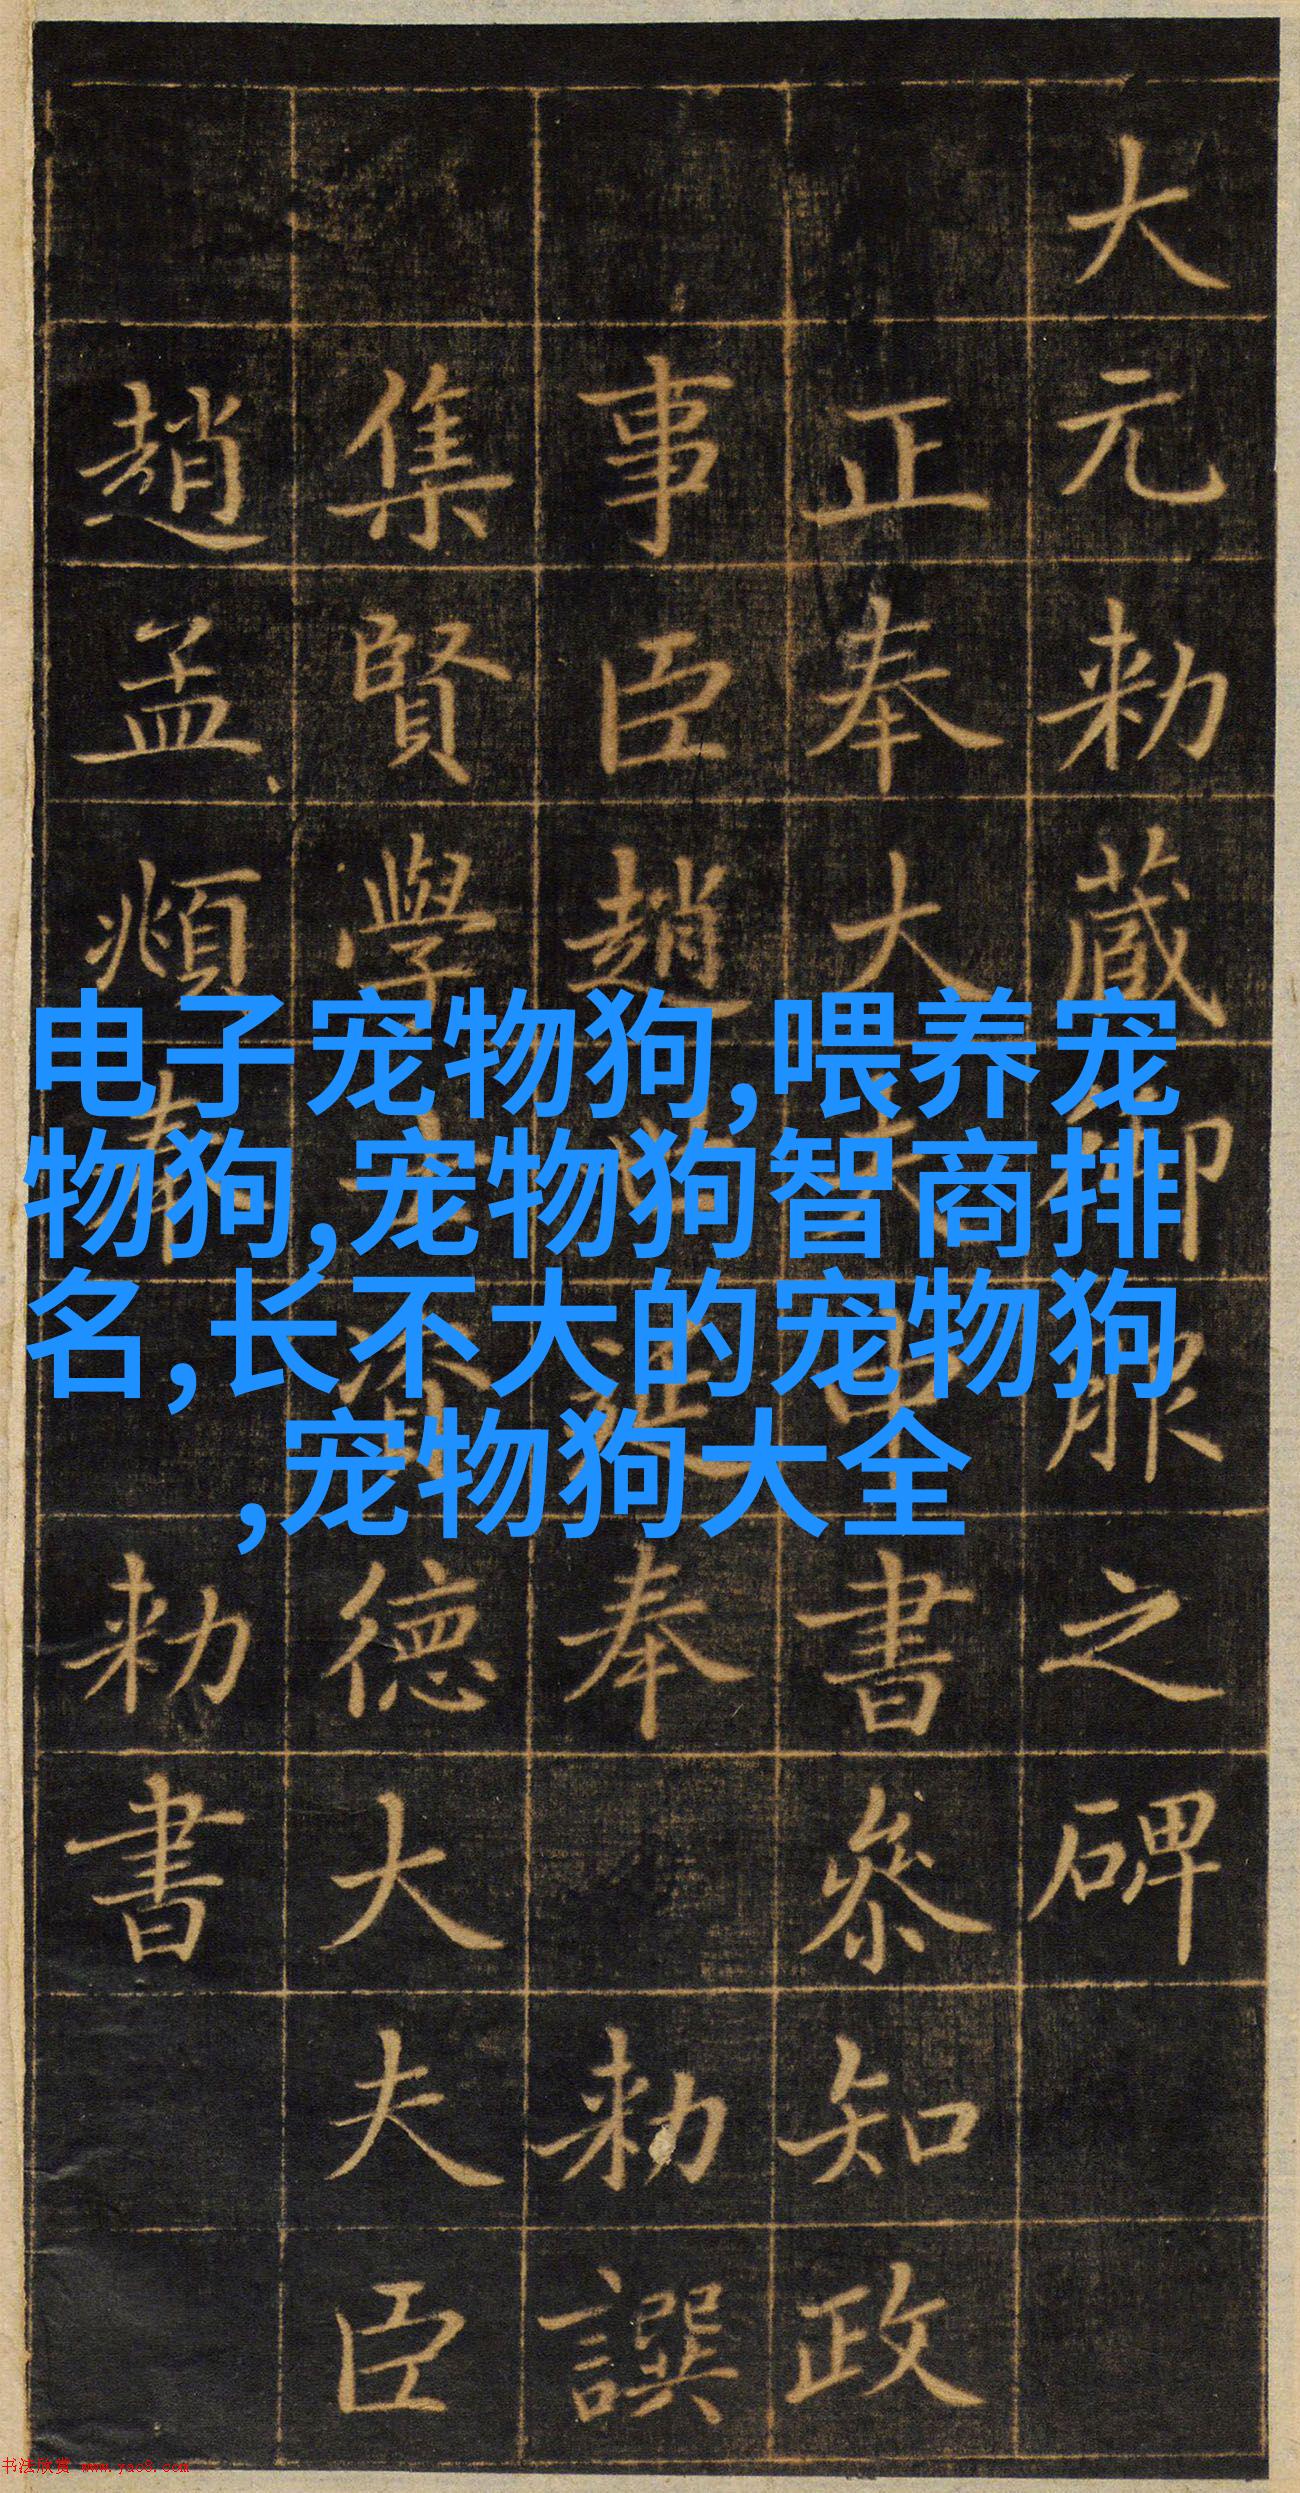 大元勅蔵御服之碑
正奉大夫中書叅知政
事臣趙世延奉勅譔
集賢學士資德大夫臣
趙孟頫奉勅書
电子宠物狗,喂养宠
物狗,宠物狗智商排
名,长不大的宠物狗
,宠物狗大全
书法欣赏 www.yac8.com